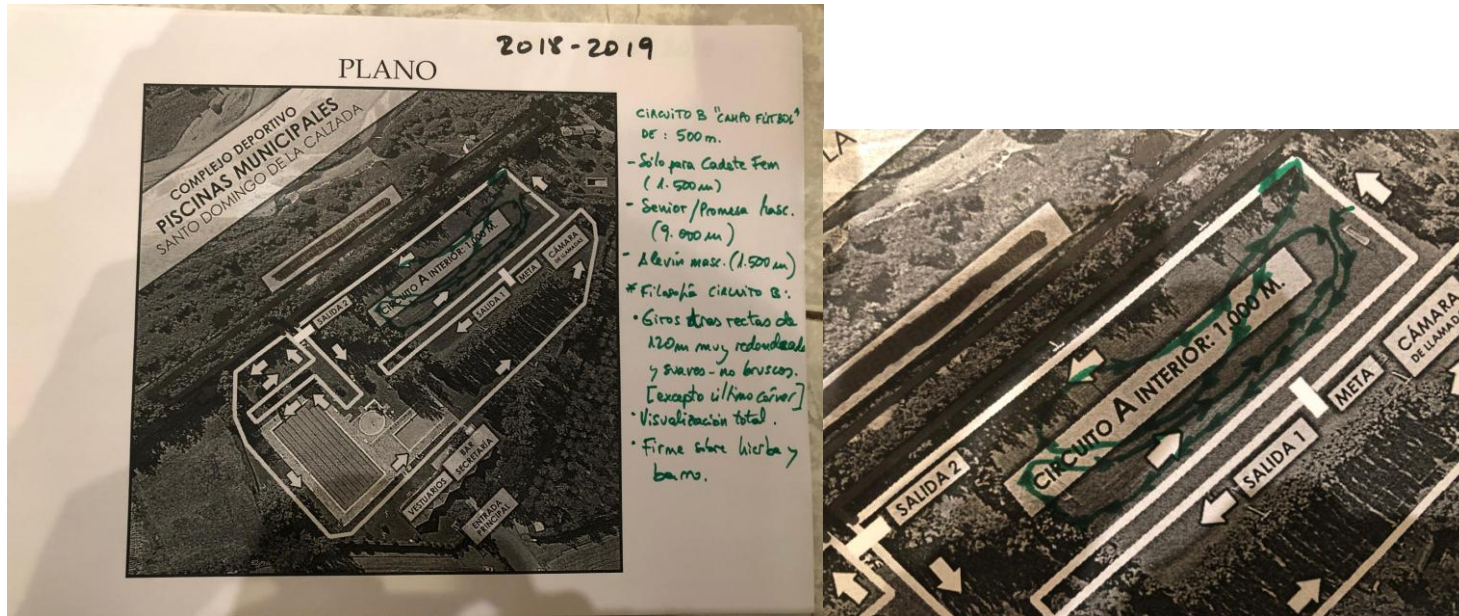 2018-2019
PLANO
COMPLEJO DEPORTIVO
PISCINAS MUNICIPALES
SANTO DOMINGO DE LA CALZADA
CIRCUITO A INTERIOR: 1.000 M.
SALIDA 2
SALIDA 1
META
CÁMARA
DE LLAMADAS
BAR
SECRETARÍA
VESTUARIOS
ENTRADA
PRINCIPAL
CIRCUITO B "CAMPO FÚTBOL"
DE : 500 m.
- Sólo para Cadete Fem
(1.500 m)
- Senior/Promesa Masc.
(9.000 m)
- Alevín masc. (1.500 m)
* Filosofía CIRCUITO B:
• Giros tras rectas de
120m muy redondeados
y suaves - no bruscos.
[excepto último córner]
• Visualización total.
• Firme sobre hierba y
barro.
LA
CIRCUITO A INTERIOR: 1.000 M.
SALIDA 2
SALIDA 1
META
CÁMARA
DE LLAMADAS